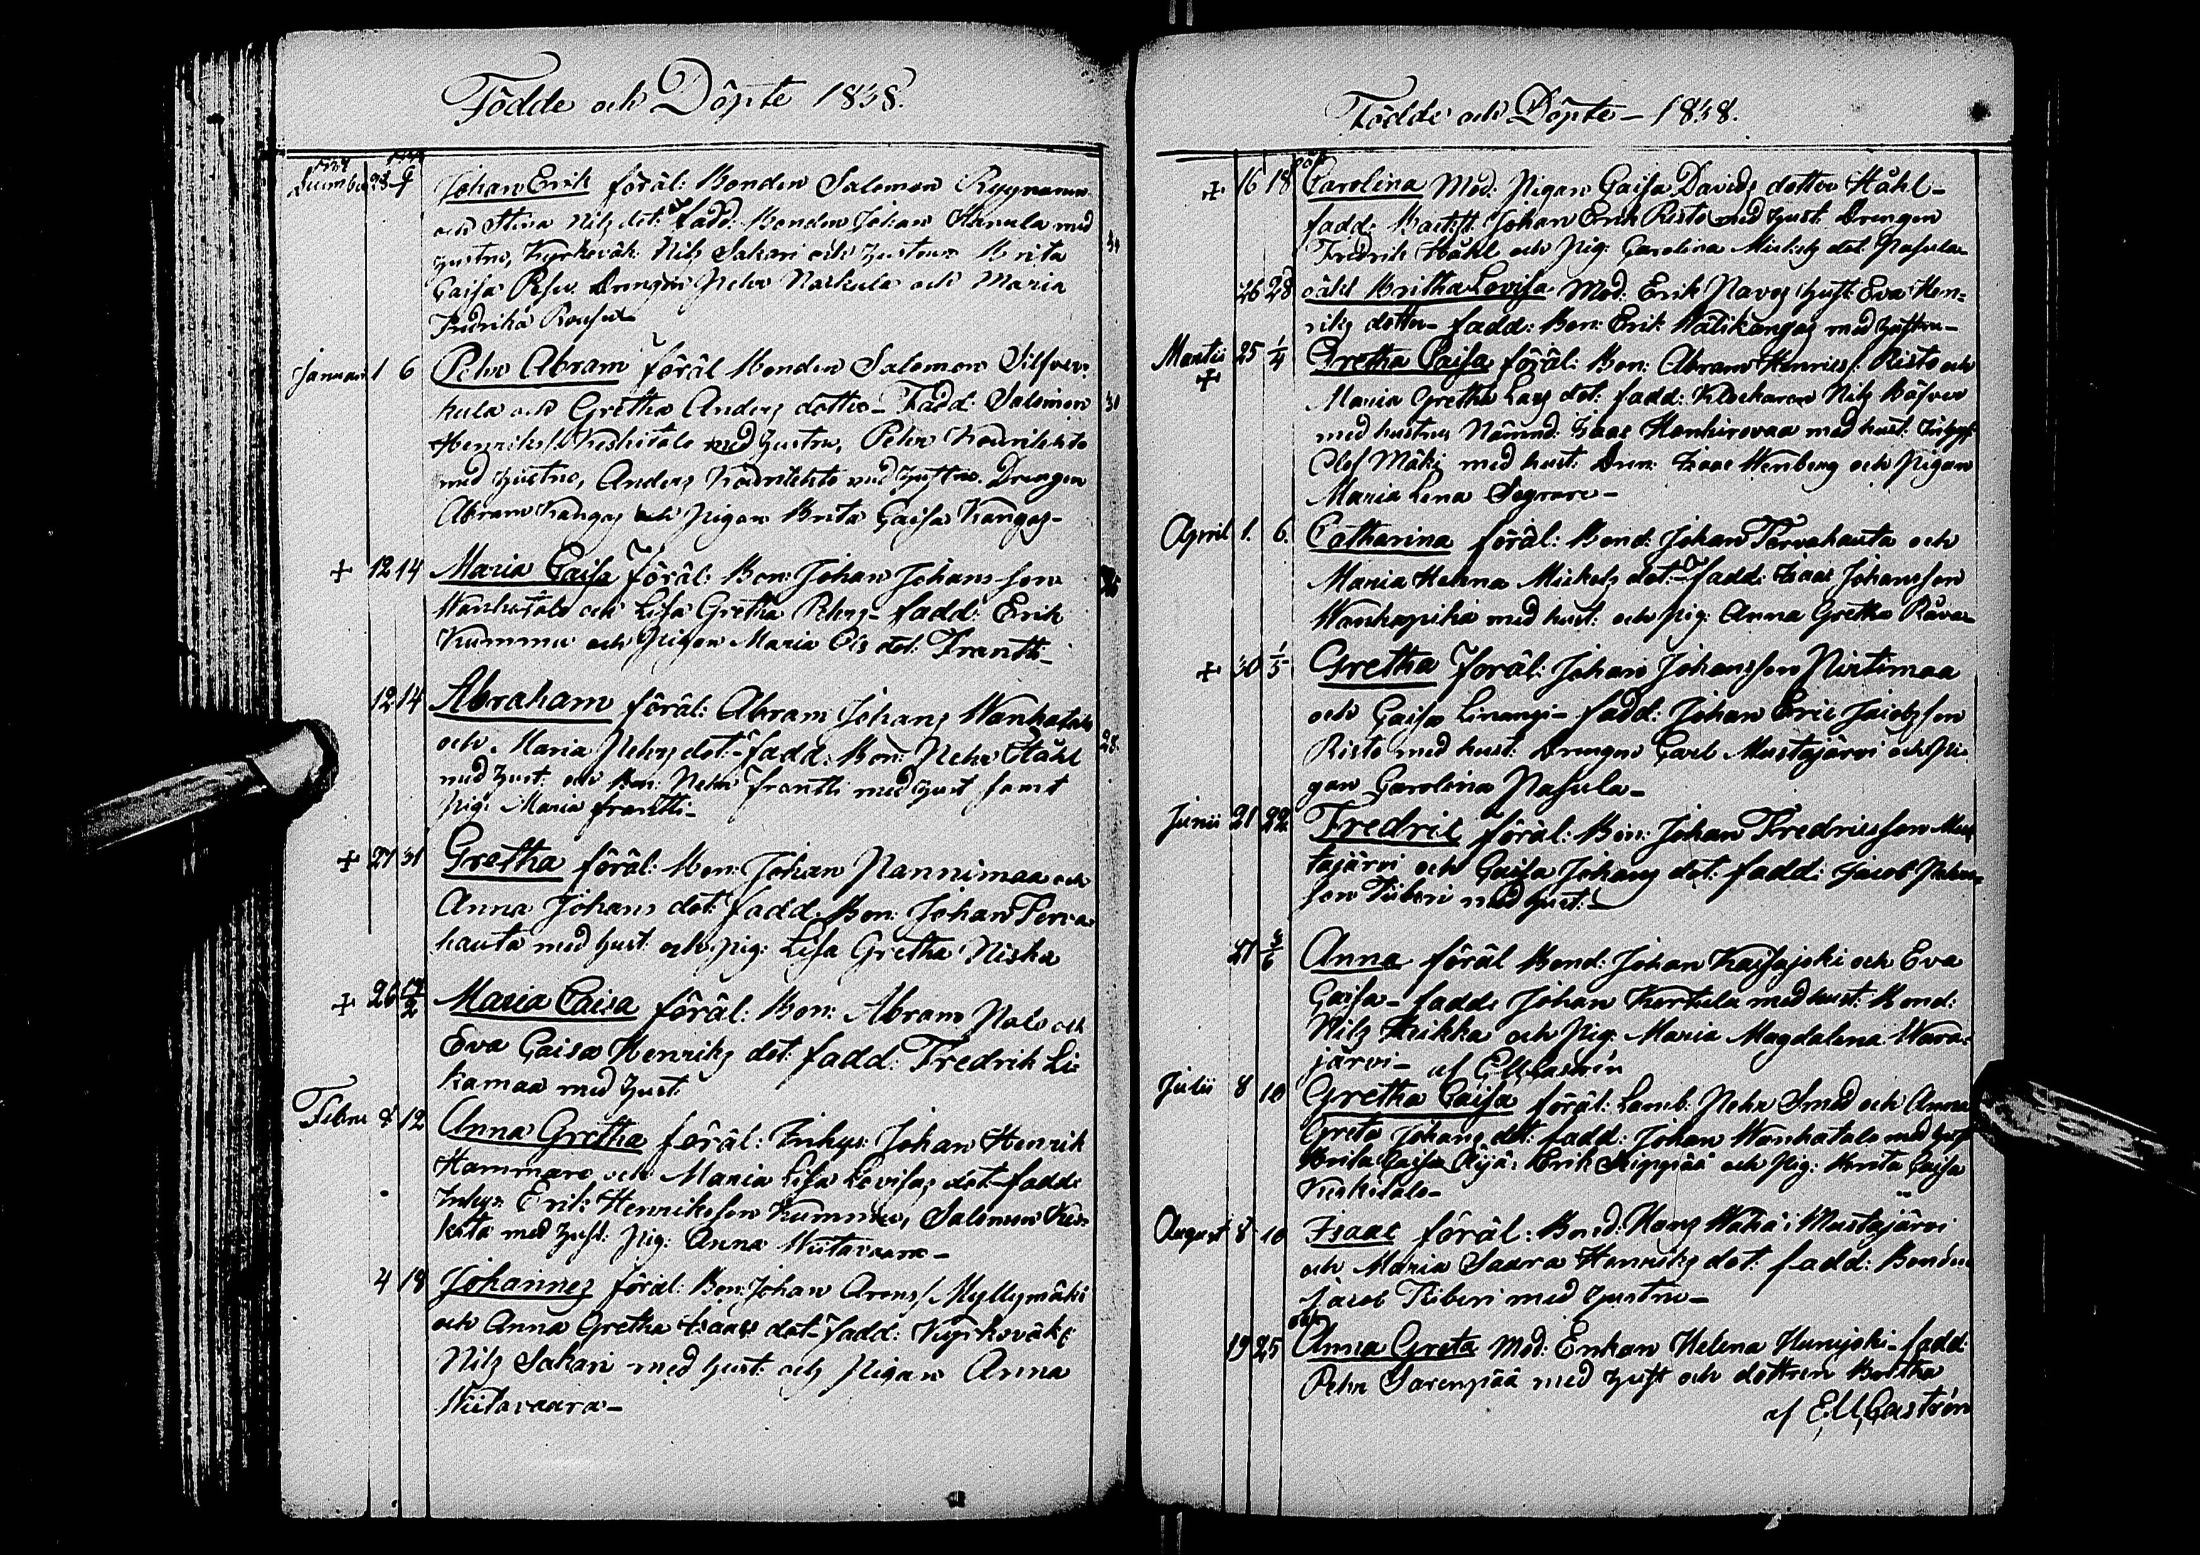 Födde och Döpte 1838.
Decembr 28 9 Johan Erik föräl: Bonden Salomon Ryynänen
och Stina Nils dot: fadd: Bonden Johan Harula med
hustru, Kyrkovärd: Nils Sakari och hustrun Brita
Caisa Drengen Pehr Naskula och Maria
Fredrika
Januari 1 6 Pehr Abram föräl Bonden Salomon Silfver-
kula och Gretha Anders dotter- Fadd: Salomon
Henriks/: Keskitalo med hustru, Pehr
med hustru, Anders med hustru. Drengen
Abram Kangas och pigan Brita Caisa Kangas-
+ 12 14 Maria Caisa föräl: Bon: Johan Johansson
Wanhatalo och Lisa Gretha Pehrs- fadd: Erik
Kummu och Pigan Maria Ols dot: Frantti-
12 14 Abraham föräl: Abram Johans Wanhatalo
och Maria Pehrs dot:- fadd: Bon: Pehr Ståhl
med hust: och Bon: Pehr Frantti med hust samt
pig: Maria Frantti-
28
+ 27 31 Gretha föräl: Bon: Johan Nannimaa och
Anna Johans dot: fadd: Bon: Johan Perva-
hauta med hust: och pig: Lisa Gretha Niska
+ 26 17/2 Maria Caisa föräl: Bon: Abram Palo och
Eva Caisa Henriks dot: fadd: Fredrik Li-
kamaa med hust:
Febru 8 12 Anna Gretha föräl: Inhys: Johan Henrik
Hammare och Maria Lisa Lovisas dot- fadd:
Inhys: Erik Henriksson Kummu, Salomon
med hust: pig: Anna Wiitavaara-
4 18 Johannes föräl: Bon: Johan Arons/ Myllymäki
och Anna Gretha Isaacs dot- fadd: Kyrkovärd:
Nils Sakari med hust: och pigan Anna
Wiitavaara-
Födde och Döpte- 1838.
+ 16 18 oäk Carolina Mod: Pigan Caisa Davids dotter Ståhl-
fadd: Johan Erik Risto med hust: Drengen
Fredrik Ståhl och pig: Carolina Mickels dot: Pasula-
26 28 oäkt Britha Lovisa Mod: Erik Pavos hust: Eva Hen-
riks dotter- fadd: Bon: Erik Wälikangas med hustru-
Martii + 25 1/4 Gretha Caisa föräl: Bon: Abram Henrics/: Risto och
Maria Gretha Lars dot: fadd: Klockaren Nils Bäfver
med hustru Nämnd: Isaac Hankirovaa med hust:
Olof Mäki med hust: Dren: Isaac Wenberg och pigan
Maria Lena Segrare-
April 1. 6. Catharina föräl: Bond: Johan Pervahauta och
Maria Helena Mickels dot:- fadd: Isaac Johansson
Wanhapiha med hust: och pig: Anna Gretha Råva-
+ 30 1/5 Gretha föräl: Johan Johansson Pirtimaa
och Caisa Linangi- fadd: Johan Eric Jacobsson
Risto med hust: Drengen Carl Mustajärvi och pi-
gan Carolina Pasula-
Junii 21 22 Fredric föräl: Bon: Johan Fredricsson Mus
tajärvi och Caisa Johans dot: fadd: Jacob Pehrs-
son Tiiberi med hust:-
27 3/6 Anna föräl Bond: Johan Kaisajoki och Eva
Caisa- fadd: Johan Kertula med hust: Bond:
Nils Krikka och pig: Maria Magdalena Wara-
järvi- af E.M.Castrén
Julii 8 10 Gretha Caisa föräl: Lamb: Pehr Smed och Anna
Greta Johans dot: fadd: Johan Wanhatalo med hust
Brita Caisa Erik och pig: Brita Caisa
Keskitalo-
August 8 10 Isaac föräl: Bond: Hans Wähä i Mustajärvi
och Maria Saara Henriks dot: fadd: Bonden
Jacob Tiiberi med hustru-
19 25 oäk Anna Greta Mod: Enkan Helena Hunijoki- fadd:
Pehr Sarenpää med hust och dottren Britha
af E.M.Castrén